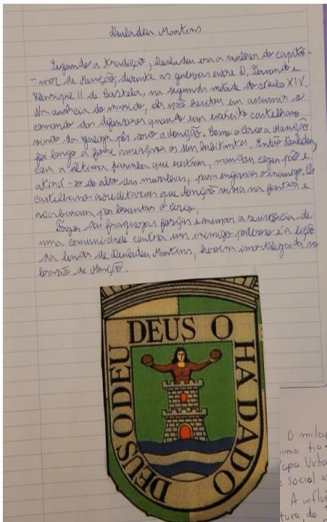 Deuladeu Martins
Segundo a tradição, Deuladeu era a mulher do capitão-
-mor de Monção, durante as guerras entre D. Fernando e
Henrique II de Castela, na segunda metade do século XIV.
Na ausência do marido, ela não hesitou em assumir o
comando dos defensores quando um exército castelhano
vindo da Galiza pôs cerco a Monção. Como o cerco a Monção
foi longo a fome os seus habitantes. Então Deuladeu,
com a última farinha que restava, mandou cozer pão e
atirá-lo do alto das muralhas, para enganar o inimigo. Os
castelhanos acreditaram que Monção estava na fartura e
acabaram por levantar o cerco.
Fazer das fraquezas forças e a resistência de
uma comunidade contra um inimigo poderoso é a lição
da lenda de Deuladeu Martins, heroína imortalizada no
brasão de Monção.
DEUS O DEU
DEUS O HÁ DADO
O
uma
apa Urb
social
A influ
tura, do